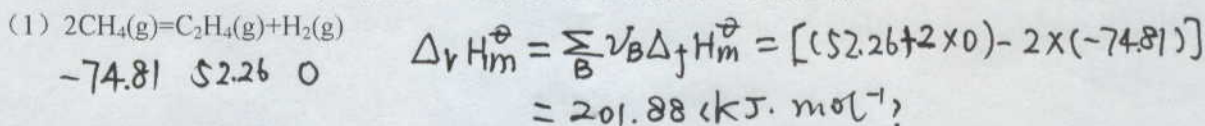 (1) 2CH₄(g)=C₂H₄(g)+H₂(g)
-74.81 52.26 0
ΔrHm^θ = Σ_B νB ΔfHm^θ = [(52.26+2×0)-2×(-74.81)]
= 201.88 (kJ·mol⁻¹)